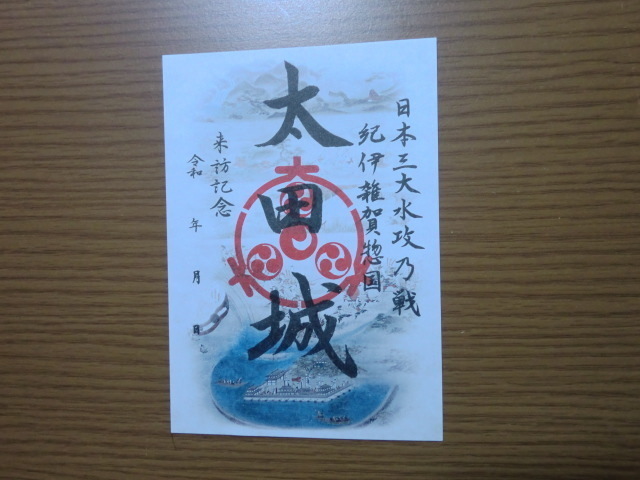 日本三大水攻乃戦
紀伊雑賀惣国
太田城
来訪記念
令和 年 月 日